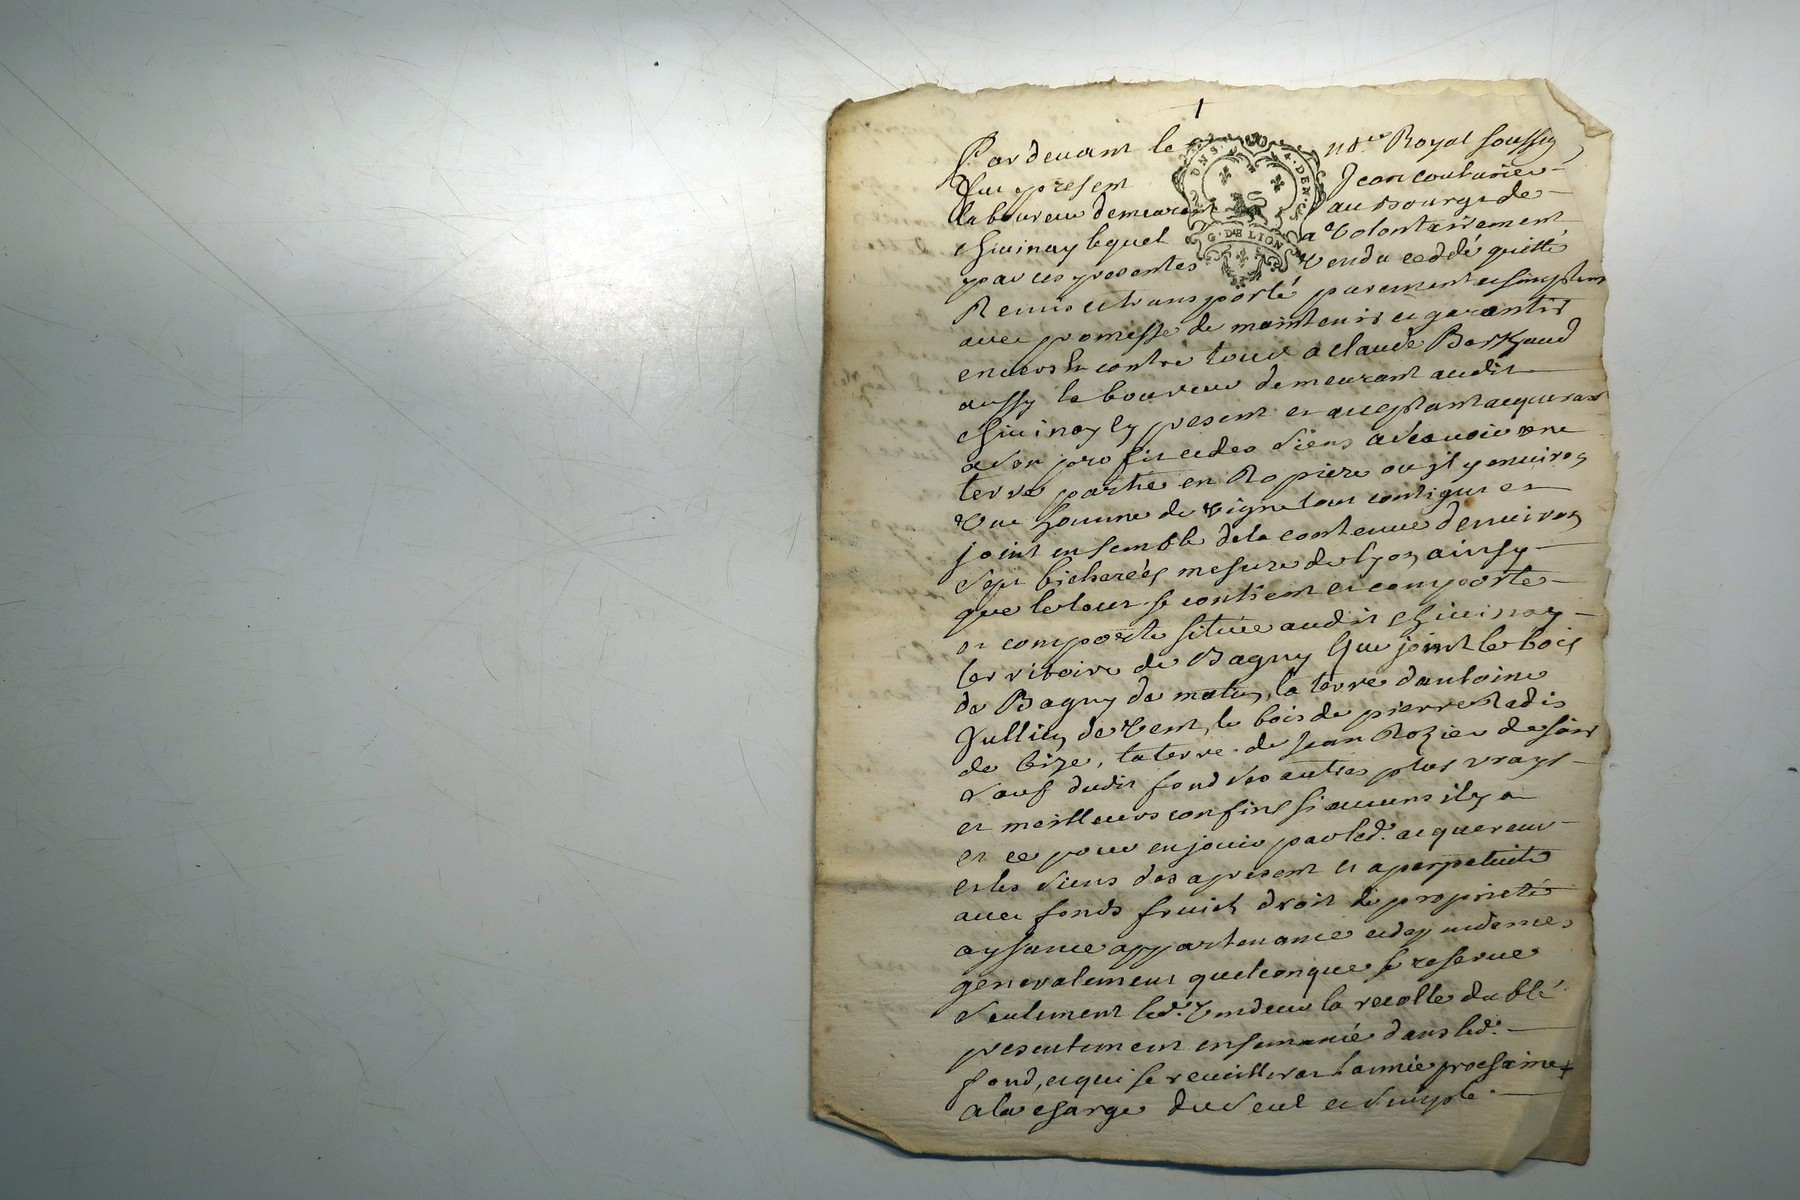 1
Par devant le no.re Royal soussig
Fut present Jean couturier
laboureur demeurant au Bourg de
chivinay lequel a volontairement
par ces presentes vendu ceddé quitté
Remis et transporté purement et simplem
avec promesse de maintenir et garantir
envers et contre tous a claude
aussy laboureur demeurant audit
chivinay cy present et acceptant acquerant
a son profit et des siens a scavoir une
terre partie en Ropiere ou il y environ
une homme de vigne tout contigus et
joint ensemble de la contenue denviron
sept bicherées mesure de lyon ainsy
que le tout se contient et comporte
et comporte située audit chivinay
territoire de Bagny que joint le bois
de Bagny de matin, la terre dantoine
Jullien de vent, le bois de pierre Radis
de bize, la terre de Jean Rozier de soir
sauf dudit fond ses autres plus vrays
et meilleurs confins si aucuns il y a
et ce pour en jouir par led. acquereur
et les siens des apresent et a perpetuité
avec fonds fruits droit de proprieté
aysance appartenance et dependances
generalement quelconque se reserve
seulement led. vendeur la recolte du blé
presentement ensemancé dans led.
fond, et qui se recueillira lannée prochaine
a la charge du seul et simple
D U N S . 4 . DEN.
G. DE LION